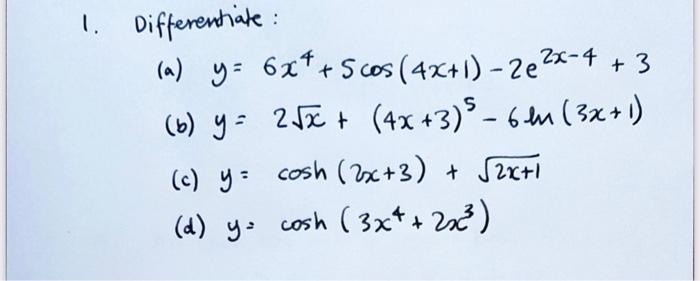 1. Differentiate :
(a) y = 6x⁴ + 5 cos (4x+1) - 2e^{2x-4} + 3
(b) y = 2√x + (4x+3)⁵ - 6 ln (3x+1)
(c) y = cosh (2x+3) + √(2x+1)
(d) y = cosh (3x⁴ + 2x³)